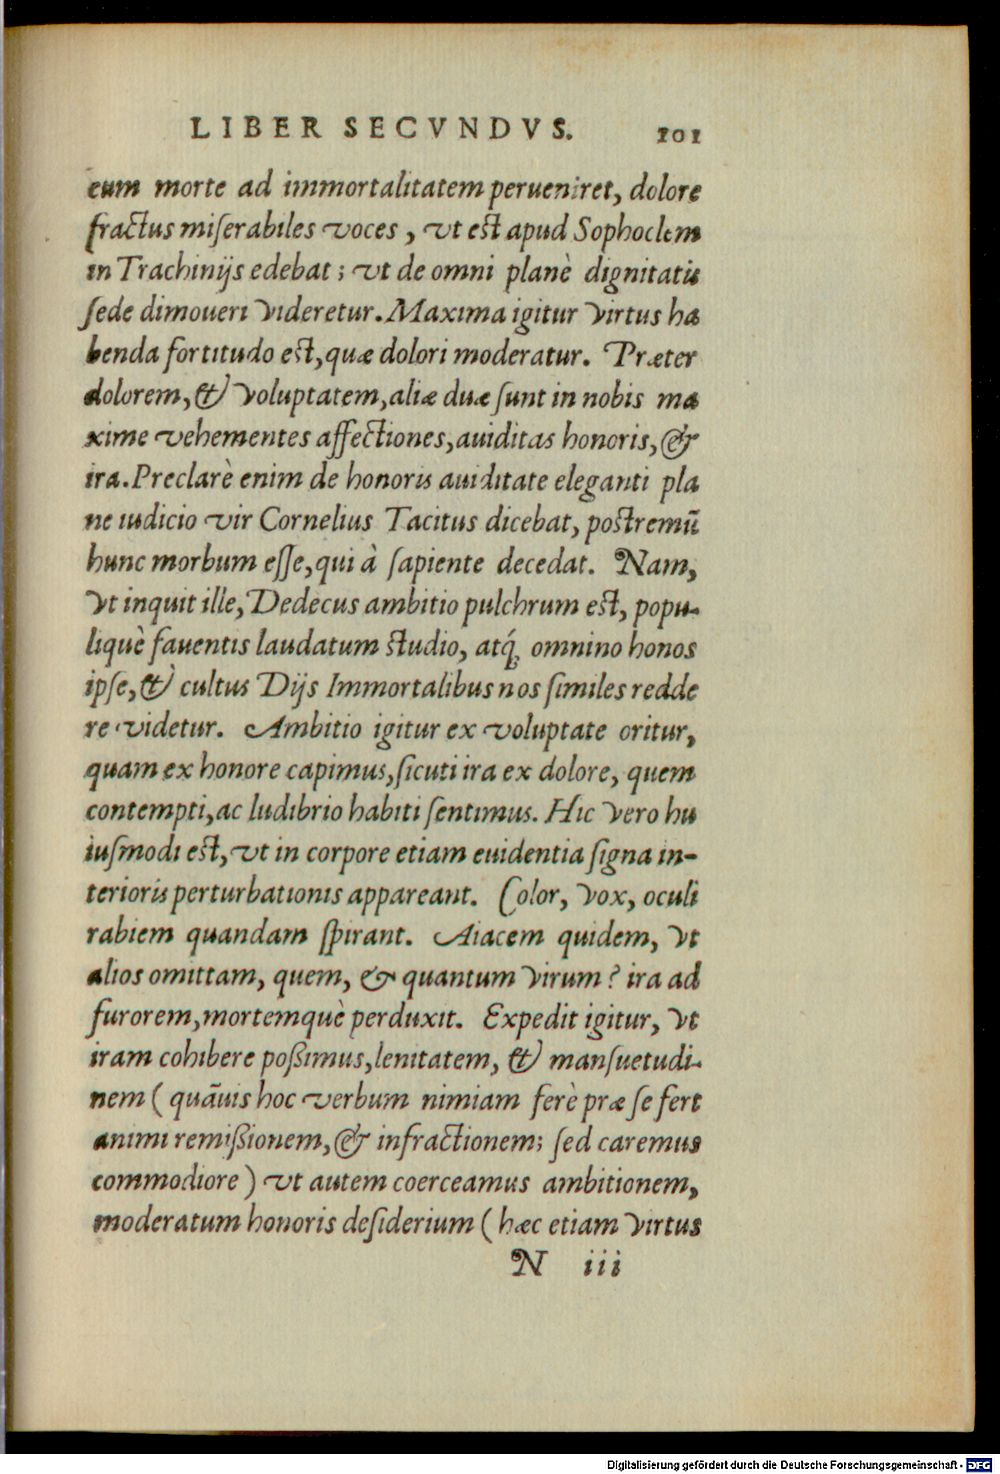 LIBER SECVNDVS. 101
eum morte ad immortalitatem perueniret, dolore
fractus miſerabiles voces, vt eſt apud Sophoclem
in Trachinijs edebat; vt de omni planè dignitatis
ſede dimoueri videretur. Maxima igitur virtus ha
benda fortitudo eſt, quæ dolori moderatur. Præter
dolorem, & voluptatem, aliæ duæ ſunt in nobis ma
xime vehementes affectiones, auiditas honoris, &
ira. Preclarè enim de honoris auiditate eleganti pla
ne iudicio vir Cornelius Tacitus dicebat, poſtremũ
hunc morbum eſſe, qui à ſapiente decedat. Nam,
vt inquit ille, Dedecus ambitio pulchrum eſt, popu-
liquè fauentis laudatum ſtudio, atq́; omnino honos
ipſe, & cultus Dijs Immortalibus nos ſimiles redde
re videtur. Ambitio igitur ex voluptate oritur,
quam ex honore capimus, ſicuti ira ex dolore, quem
contempti, ac ludibrio habiti ſentimus. Hic vero hu
iuſmodi eſt, vt in corpore etiam euidentia ſigna in-
terioris perturbationis appareant. Color, vox, oculi
rabiem quandam ſpirant. Aiacem quidem, vt
alios omittam, quem, & quantum virum? ira ad
furorem, mortemquè perduxit. Expedit igitur, vt
iram cohibere poßimus, lenitatem, & manſuetudi-
nem (quãuis hoc verbum nimiam ferè præ ſe fert
animi remißionem, & infractionem; ſed caremus
commodiore) vt autem coerceamus ambitionem,
moderatum honoris deſiderium (hæc etiam virtus
N iii
Digitalisierung gefördert durch die Deutsche Forschungsgemeinschaft - DFG